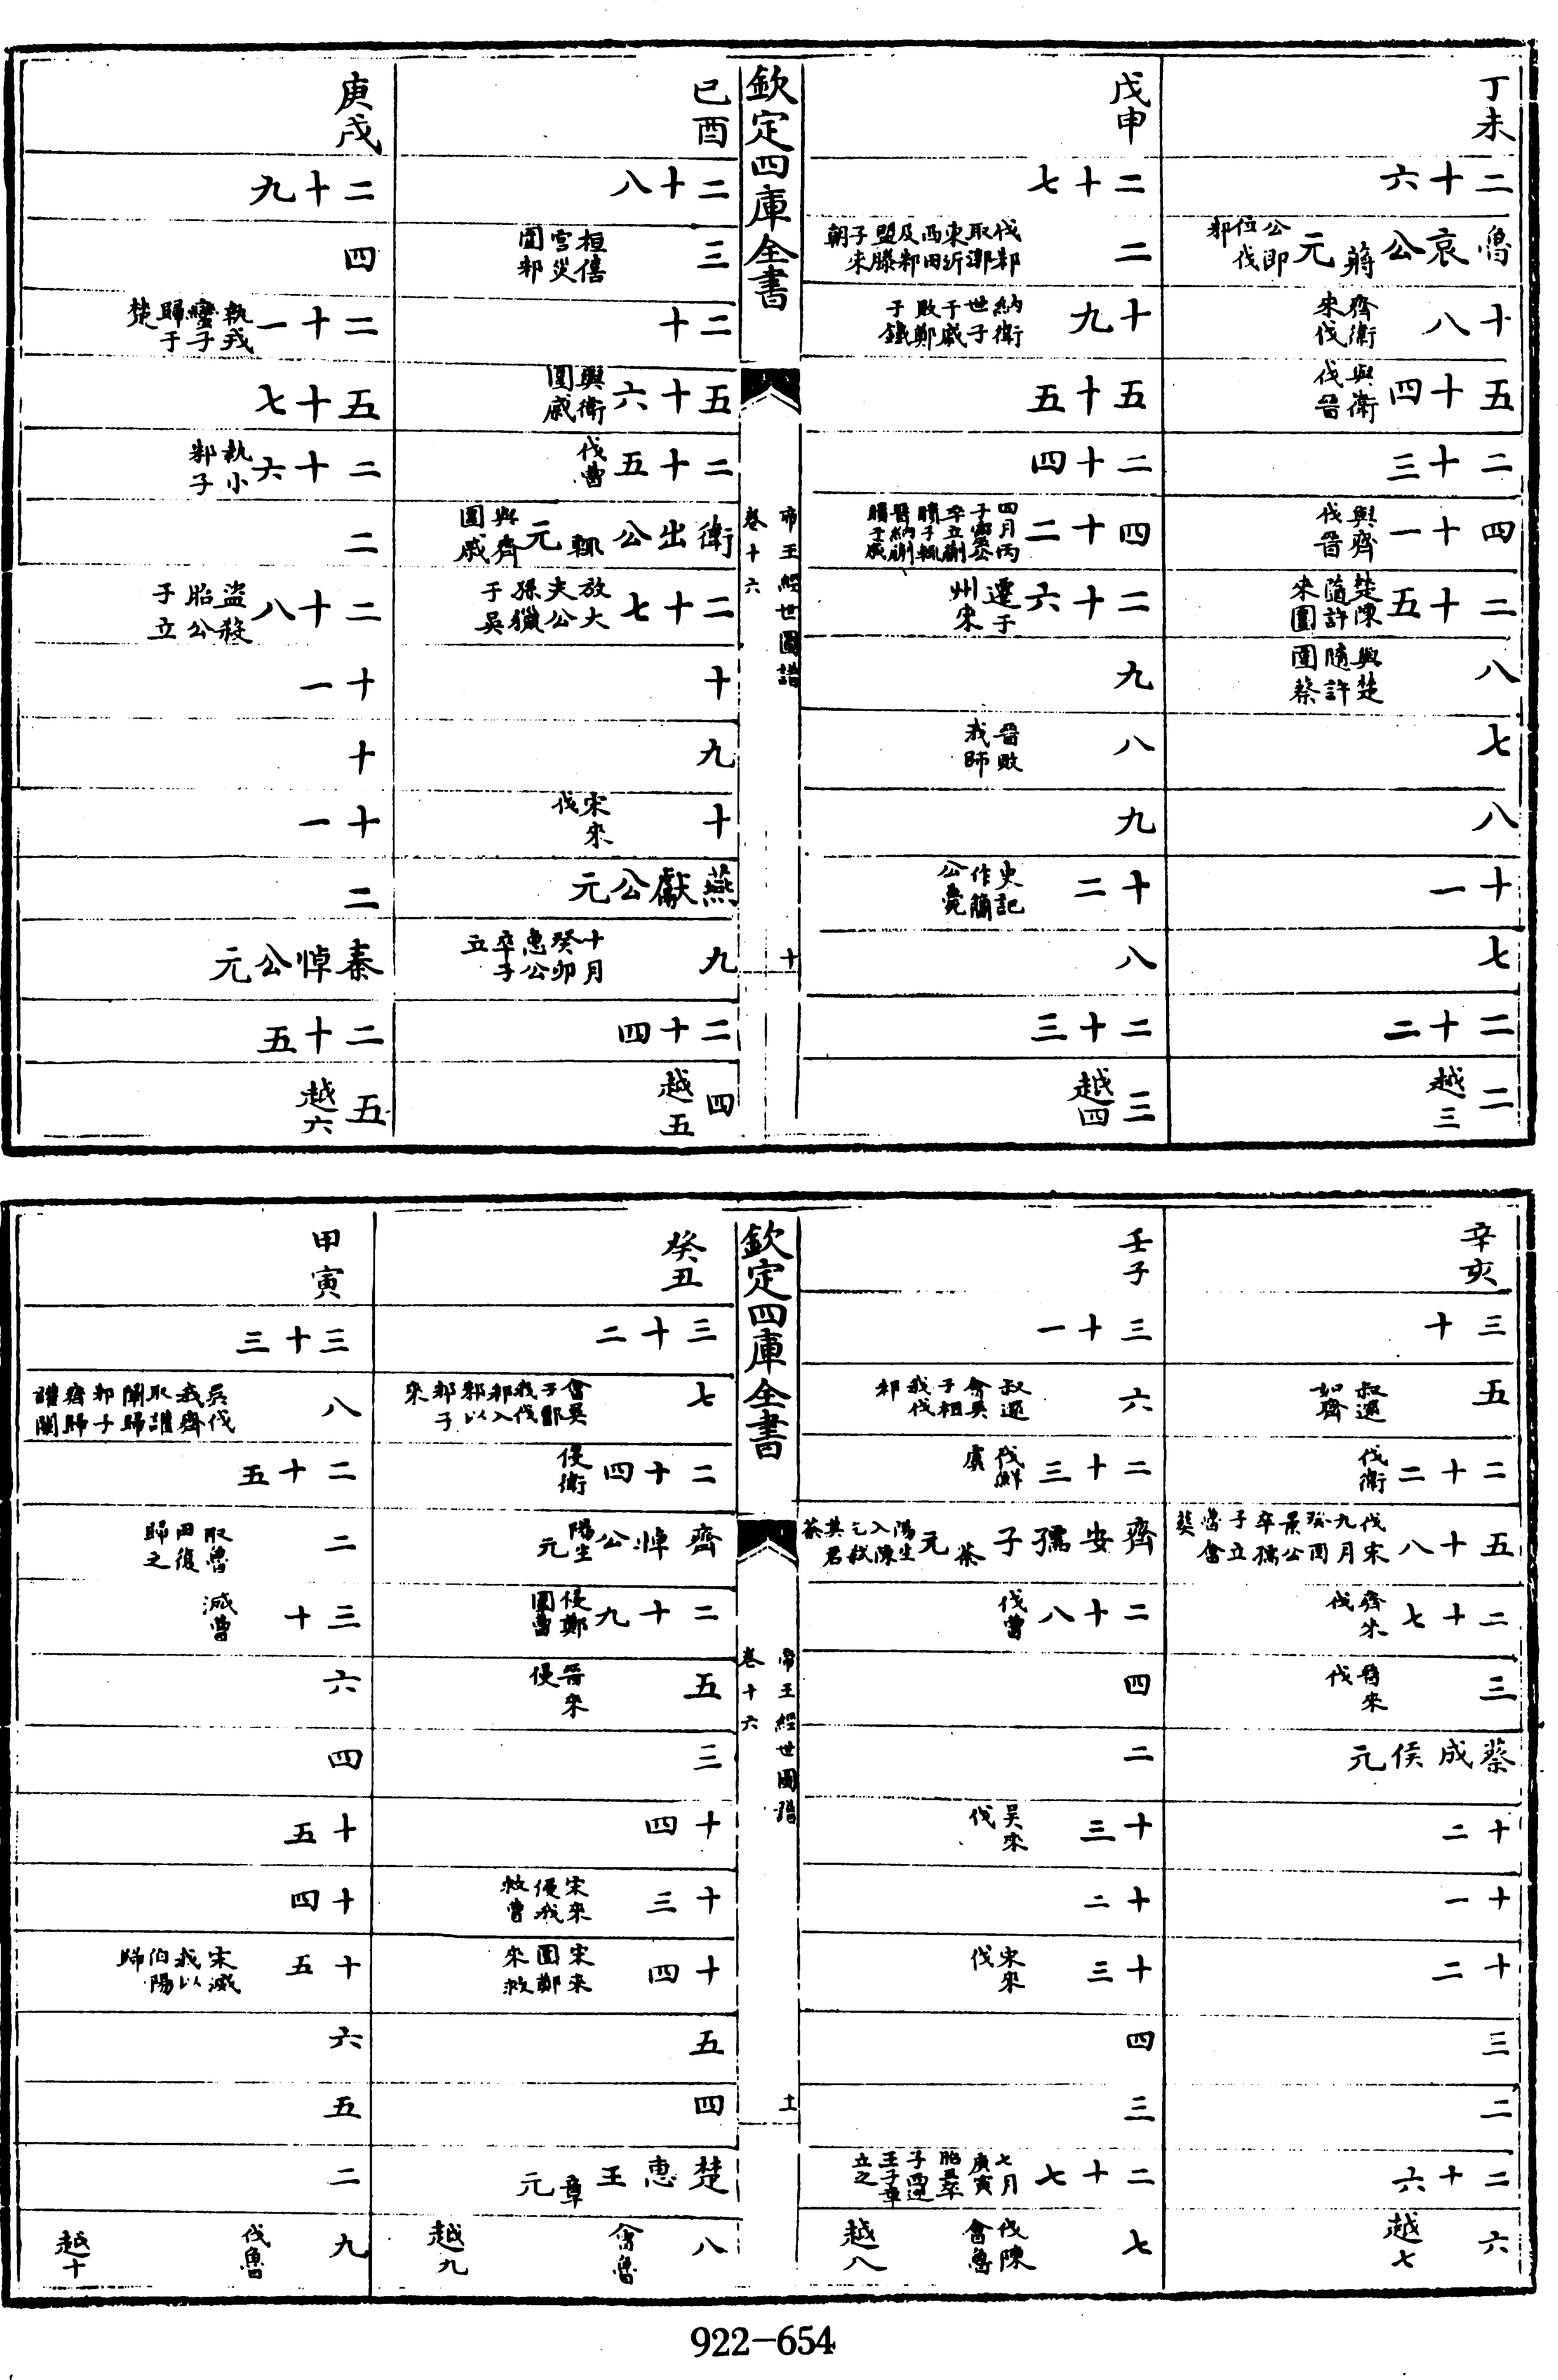 丁未
二十六
魯哀公蔣元 公即位伐邾
十八 齊衛來伐
五十四 與衛伐晉
二十三
四十一 與齊伐晉
二十五 楚陳隨許來圍
八 與楚隨許圍蔡
七
八
十一
七
二十二
二 越三
戊申
二十七
二 伐邾取漷東沂西田及邾盟滕子來朝
十九 納衛世子于戚敗鄭于鐵
五十五
二十四
四十二 四月丙子靈公卒立蒯聵子輒晉納蒯聵于戚
二十六 遷于州來
九
八 晉敗我師
九
十二 史記作簡公薨
八
二十三
三 越四
欽定四庫全書
帝王經世圖譜
卷十六
十
己酉
二十八
三 桓僖宫災圍邾
二十
五十六 與衛圍戚
二十五 伐曹
衛出公輒元 與齊圍戚
二十七 放大夫公孫獵于吳
十
九
十 宋來伐
燕獻公元
九 十月癸卯惠公卒子立
二十四
四 越五
庚戌
二十九
四
二十一 執戎蠻子歸于楚
五十七
二十六 執小邾子
二
二十八 盜殺胎公子立
十一
十
十一
二
秦悼公元
二十五
五 越六
辛亥
三十
五 叔還如齊
二十二 伐衛
五十八 伐宋九月癸酉景公卒孺子立魯會葬
二十七 齊來伐
三 晉來伐
蔡成侯元
十二
十一
十二
三
二
二十六
六 越七
壬子
三十一
六 叔還會吳子相我伐邾
二十三 伐鮮虞
齊安孺子荼元 陽生入陳乞弒其君荼
二十八 伐曹
四
二
十三 吳來伐
十二
十三 宋來伐
四
三
二十七 七月庚寅胎王卒子西逆王子章立之
七 伐陳會魯 越八
欽定四庫全書
帝王經世圖譜
卷十六
十一
癸丑
三十二
七 會吳子鄫我伐邾入邾以邾子來
二十四 侵衛
齊悼公陽生元
二十九 侵鄭圍曹
五 晉來侵
三
十四
十三 宋來侵我救曹
十四 宋來圍鄭來救
五
四
楚惠王章元
八 會魯 越九
甲寅
三十三
八 吳伐我齊取讙闡歸邾子齊歸讙闡
二十五
二 取魯田復歸之
三十 滅曹
六
四
十五
十四
十五 宋滅我以伯陽歸
六
五
二
九 伐魯 越十
922-654